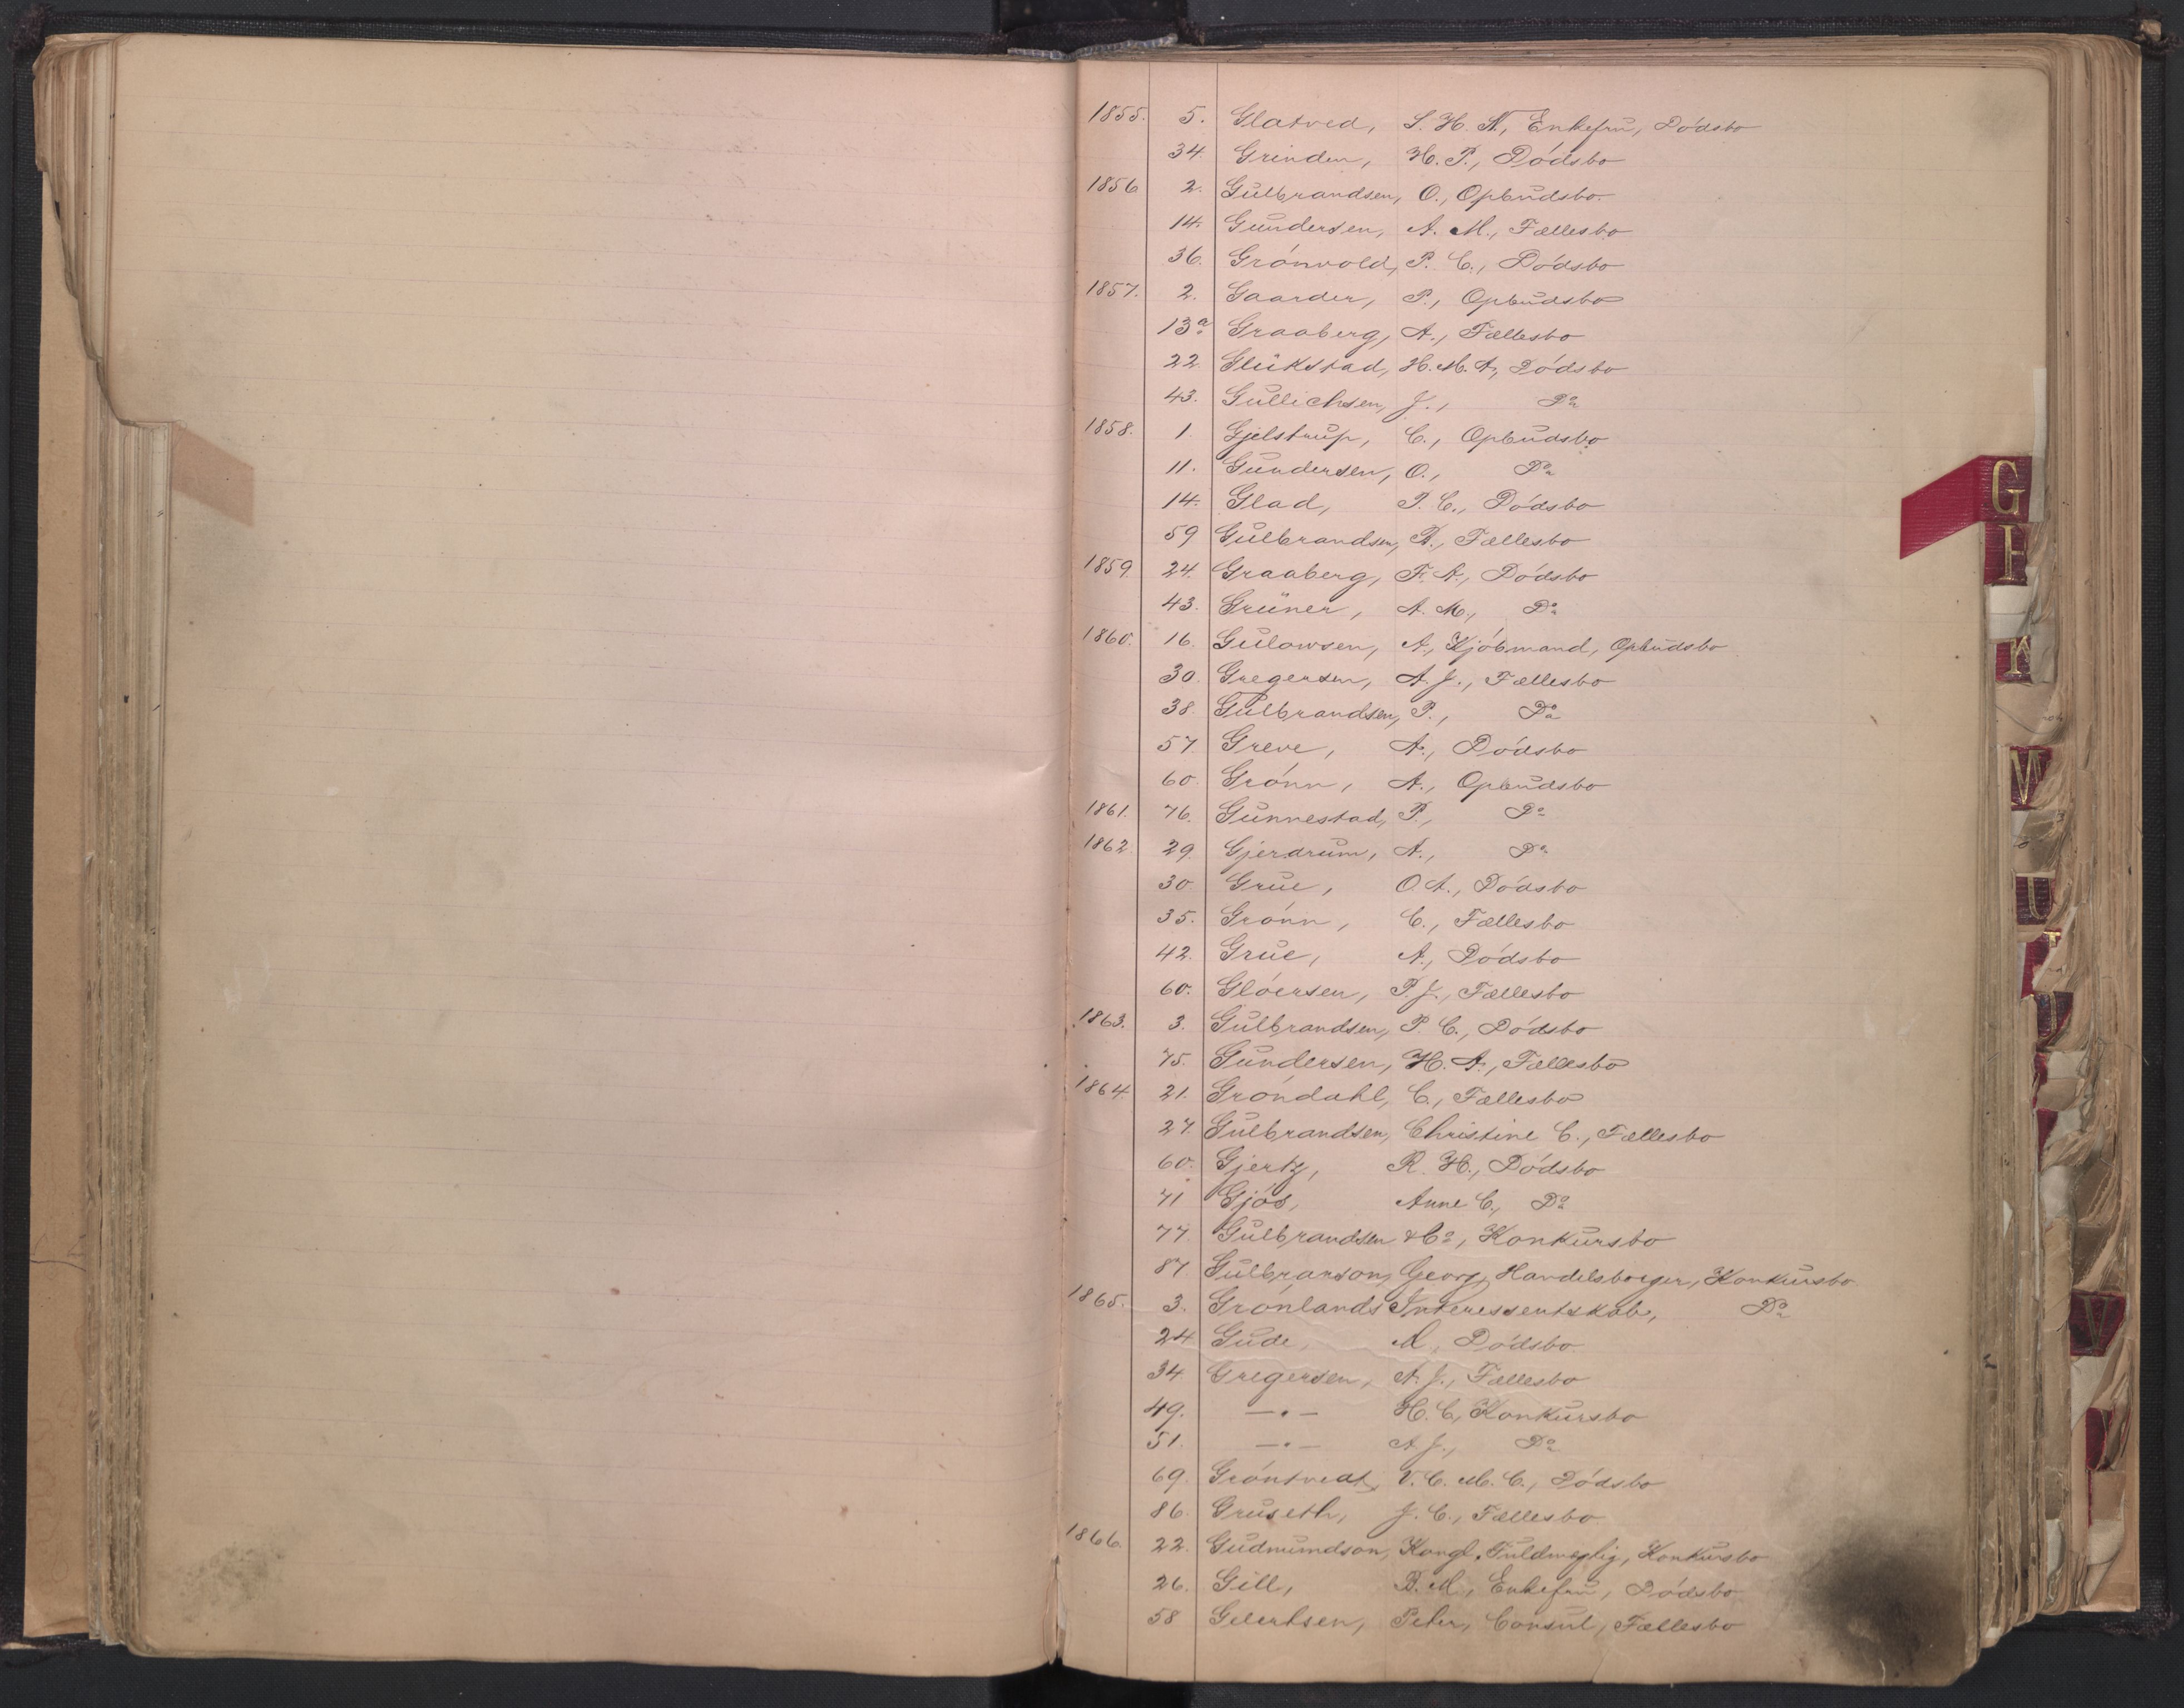 1855. 5. Glatved, S. H. N, Enkefru, Dódsbo
34. Grinden, H. P., Dódsbo
1856 2. Gulbrandsen, O., Opbudsbo.
14. Gundersen, A. M., Fællesbo
36. Grónvold, P. C., Dódsbo
1857. 2. Gaarder, P., Opbudsbo
13a Graaberg, A., Fællesbo
22. Glükstad, H. M. A, Dódsbo
43. Gullichsen, J., Do
1858. 1. Gjelstrup, C., Opbudsbo
11. Gundersen, O., Do
14. Glad, P. C., Dódsbo
59 Gulbrandsen, B., Fællesbo
1859. 24. Graaberg, F. A., Dódsbo
43. Grüner, A. M., Do
1860. 16. Gulowsen, A., Kjóbmand, Opbudsbo
30. Gregersen, A. J., Fællesbo
38. Gulbrandsen, P., Do
57. Greve, A., Dódsbo
60. Grónn, A., Opbudsbo
1861. 76. Gunnestad, P., Do
1862. 29. Gjerdrum, A., Do
30 Grue, O. A., Dódsbo
35. Grónn, C., Fællesbo
42. Grue, A., Dódsbo
60. Glóersen, P. J., Fællesbo
1863. 3. Gulbrandsen, P. C., Dódsbo
75. Gundersen, H. A., Fællesbo
1864. 21. Gróndahl, C., Fællesbo
27. Gulbrandsen, Christine C., Fællesbo
60. Gjertz, R. H., Dódsbo
71 Gjós, Anne C., Do
77. Gulbrandsen & Co, Konkursbo
87 Gulbranson, Georg, Handelsborger, Konkursbo
1865. 3. Grónlands Interessentskab, Do
24 Gude, M, Dódsbo
34 Gregersen, A. J., Fællesbo
49. —"— H. C, Konkursbo
51. —"— A. J., Do
69. Gróntvedt, V. C. M. C., Dódsbo
86. Gruseth, J. C., Fællesbo
1866. 22. Gudmundson, Kongl. Fuldmægtig, Konkursbo
26. Gill, B. M., Enkefru, Dódsbo
58 Geertsen, Peter, Consul, Fællesbo
G
I
W
U
V